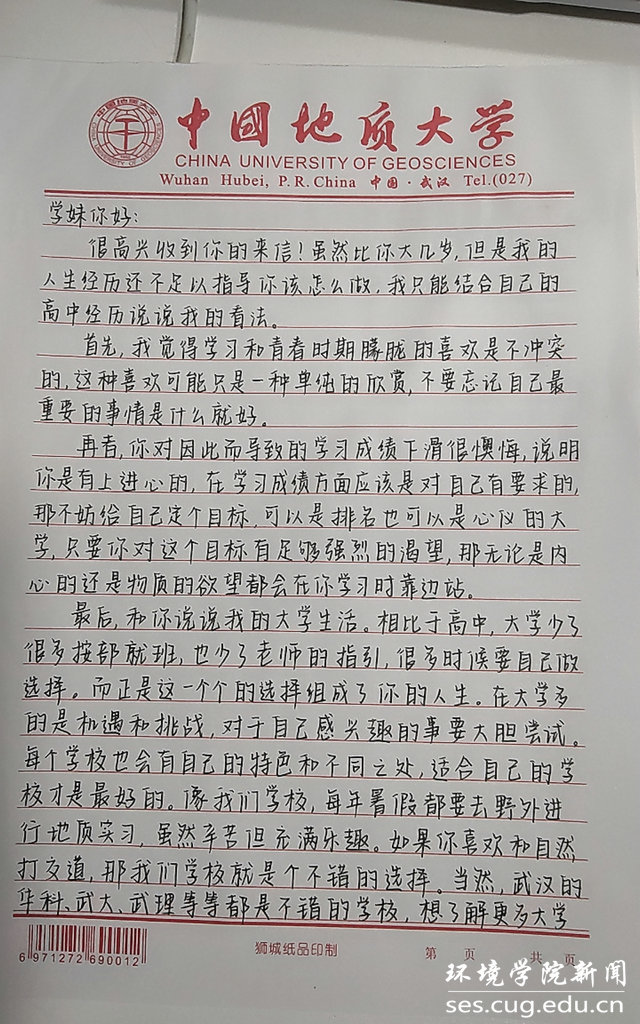 中國地质大学
CHINA UNIVERSITY OF GEOSCIENCES
Wuhan Hubei, P.R.China 中国·武汉 Tel.(027)
学妹你好:
很高兴收到你的来信!虽然比你大几岁,但是我的
人生经历还不足以指导你该怎么做,我只能结合自己的
高中经历说说我的看法。
首先,我觉得学习和青春时期朦胧的喜欢是不冲突
的,这种喜欢可能只是一种单纯的欣赏,不要忘记自己最
重要的事情是什么就好。
再者,你对因此而导致的学习成绩下滑很懊悔,说明
你是有上进心的,在学习成绩方面应该是对自己有要求的,
那不妨给自己定个目标,可以是排名也可以是心仪的大
学,只要你对这个目标有足够强烈的渴望,那无论是内
心的还是物质的欲望都会在你学习时靠边站。
最后,和你说说我的大学生活。相比于高中,大学少了
很多按部就班,也少了老师的指引,很多时候要自己做
选择。而正是这一个个的选择组成了你的人生。在大学多
的是机遇和挑战,对于自己感兴趣的事要大胆尝试。
每个学校也会有自己的特色和不同之处,适合自己的学
校才是最好的。像我们学校,每年暑假都要去野外进
行地质实习,虽然辛苦但充满乐趣。如果你喜欢和自然
打交道,那我们学校就是个不错的选择。当然,武汉的
华科、武大、武理等等都是不错的学校,想了解更多大学
6 971272 690012
狮城纸品印制
第 页 共 页
环境学院新闻
ses.cug.edu.cn